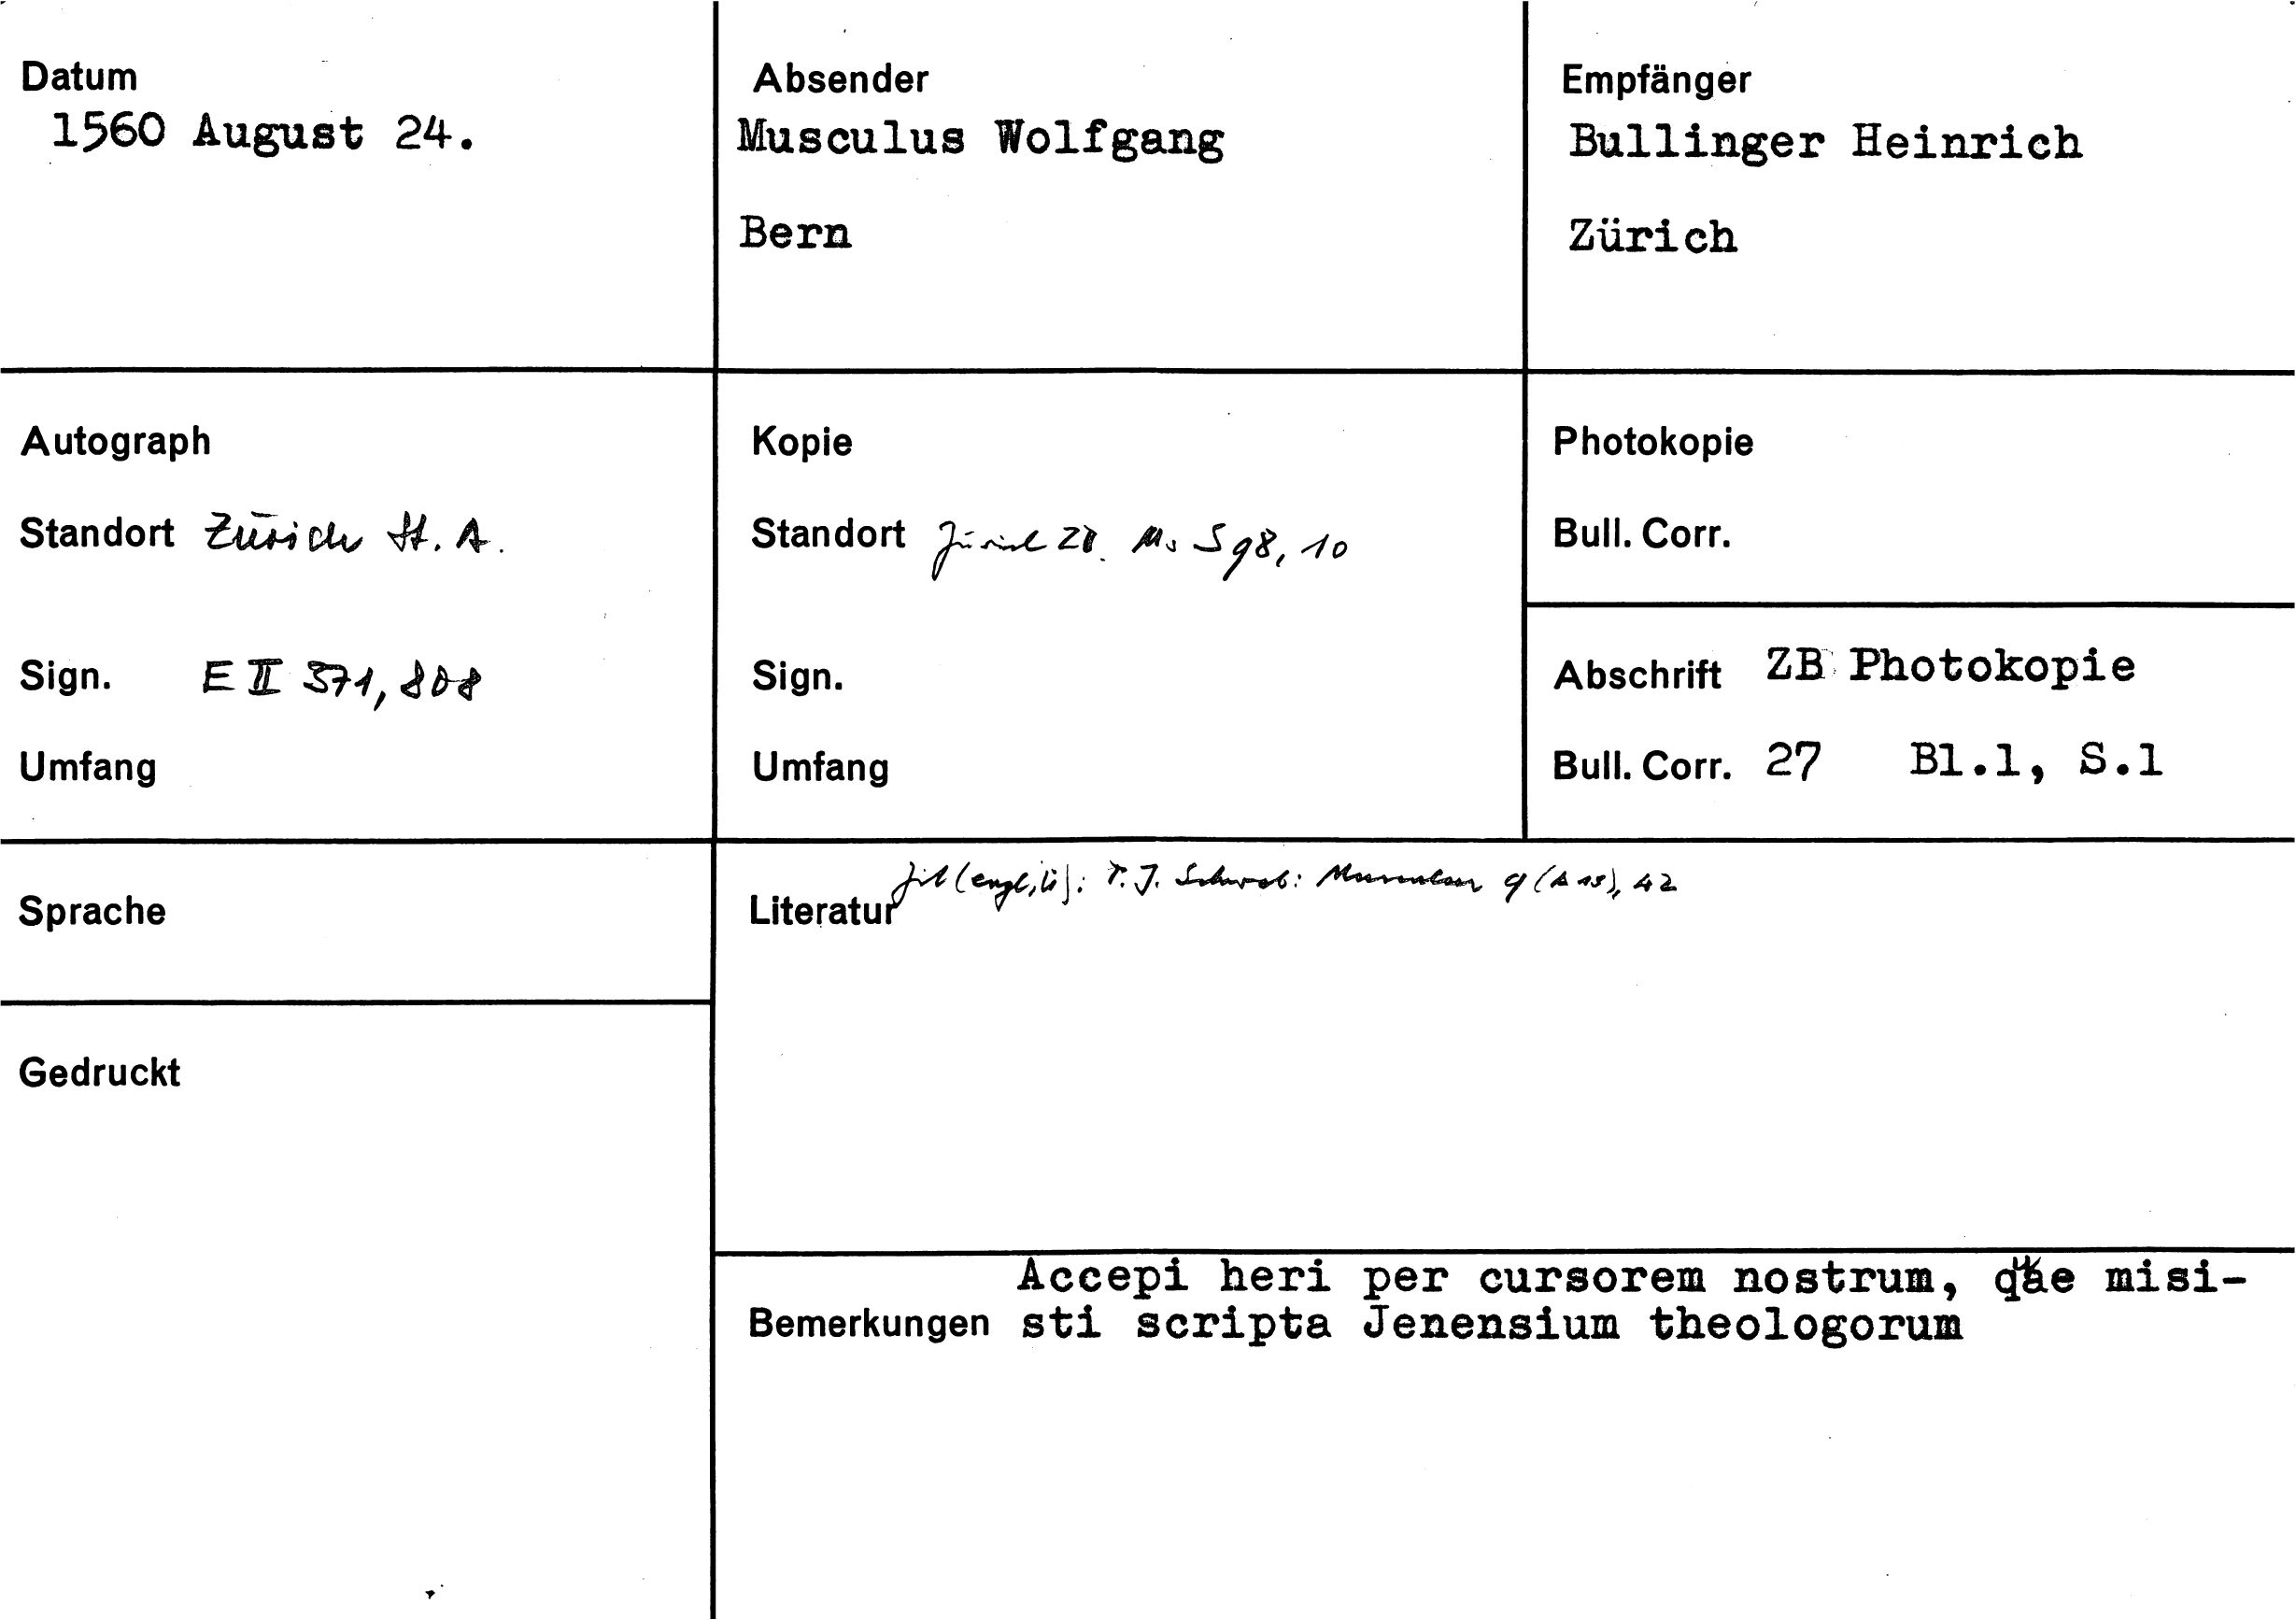 Datum
1560 August 24.
Absender
Musculus Wolfgang
Bern
Empfänger
Bullinger Heinrich
Zürich
Autograph
Standort Zürich St. A.
Sign. E II 371, 808
Umfang
Kopie
Standort Zürich ZB. Ms S 98, 10
Sign.
Umfang
Photokopie
Bull. Corr.
Abschrift ZB Photokopie
Bull. Corr. 27 Bl.1, S.1
Sprache
Gedruckt
Literatur Musculus 9 (A 15), 42
Accepi heri per cursorem nostrum, quae misi-
Bemerkungen sti scripta Jenensium theologorum